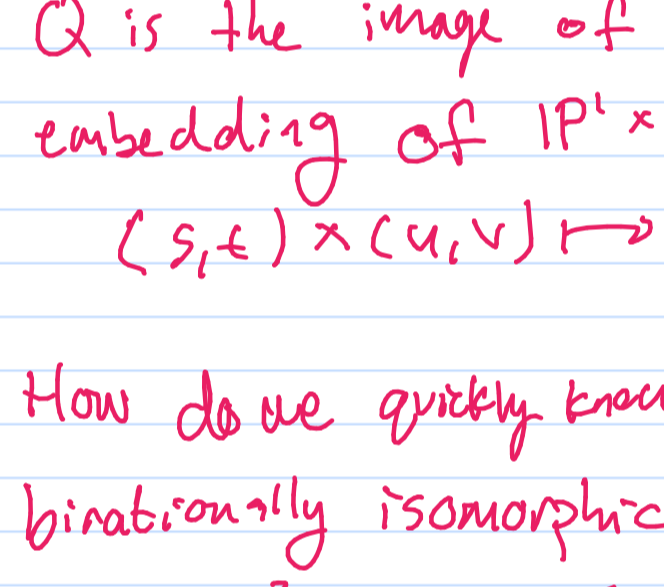 Q is the image of
embedding of ℙ¹ ×
(s,t) × (u,v) ↦
How do we quickly know
birationally isomorphic